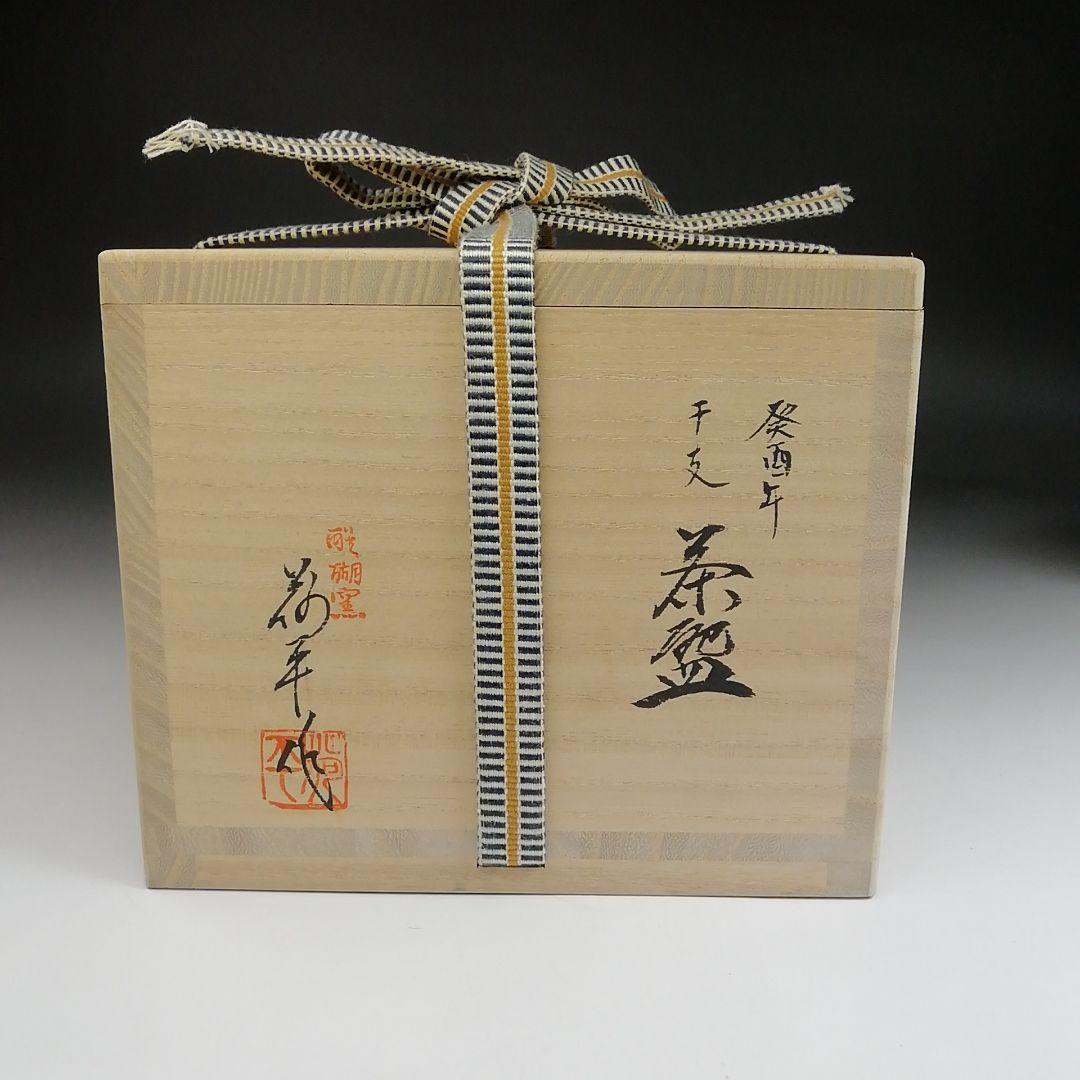 癸酉年
干支
茶盌
醍醐窯
荷平作